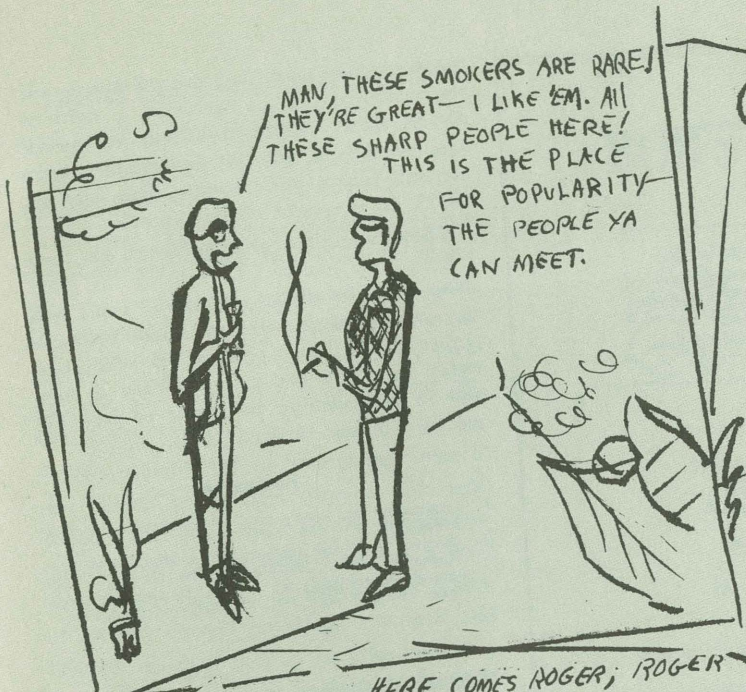 MAN, THESE SMOKERS ARE RARE!
THEY'RE GREAT— I LIKE 'EM. All
THESE SHARP PEOPLE HERE!
THIS IS THE PLACE
FOR POPULARITY—
THE PEOPLE YA
CAN MEET.
HERE COMES ROGER; ROGER